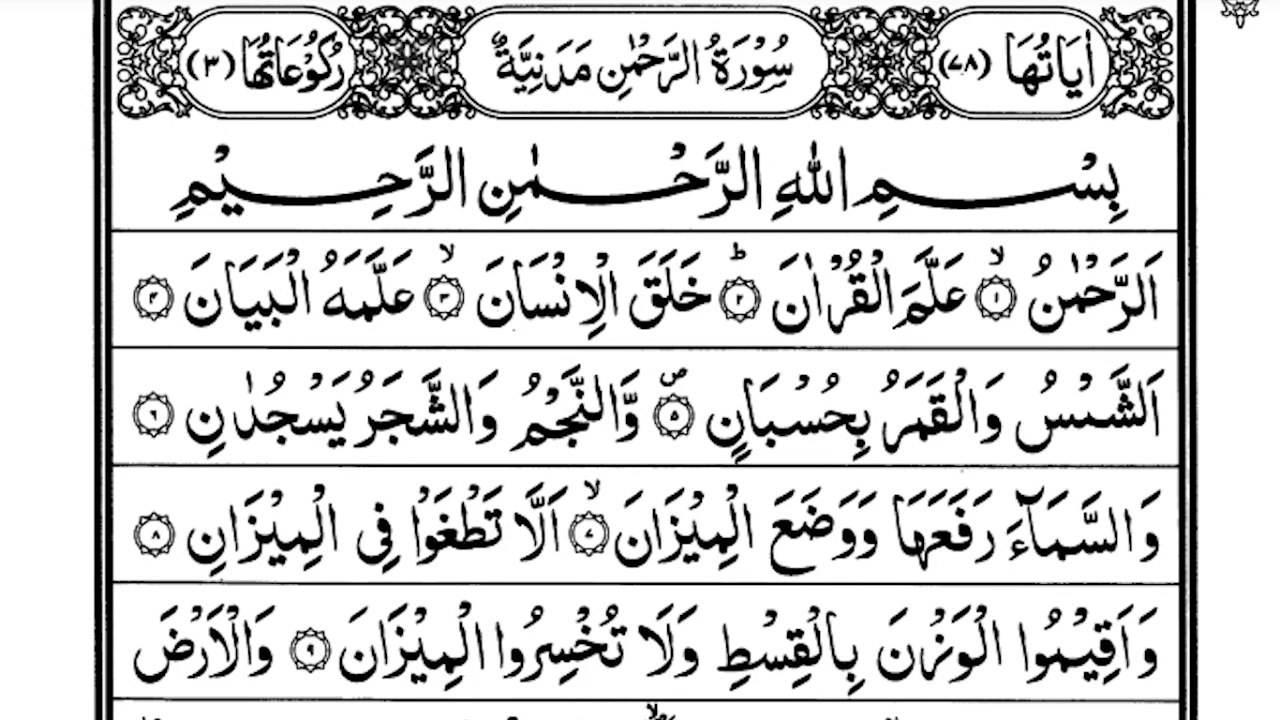 اٰيَاتُهَا (٧٨) سُوْرَةُ الرَّحْمٰنِ مَدَنِيَّةٌ رُكُوْعَاتُهَا (٣)
بِسْمِ اللّٰهِ الرَّحْمٰنِ الرَّحِيْمِ
اَلرَّحْمٰنُ ۙ﴿١﴾ عَلَّمَ الْقُرْاٰنَ ؕ﴿٢﴾ خَلَقَ الْاِنْسَانَ ۙ﴿٣﴾ عَلَّمَهُ الْبَيَانَ ﴿۴﴾
اَلشَّمْسُ وَالْقَمَرُ بِحُسْبَانٍ ۪﴿۵﴾ وَّالنَّجْمُ وَالشَّجَرُ يَسْجُدٰنِ ﴿۶﴾
وَالسَّمَآءَ رَفَعَهَا وَوَضَعَ الْمِيْزَانَ ۙ﴿٧﴾ اَلَّا تَطْغَوْا فِى الْمِيْزَانِ ﴿٨﴾
وَاَقِيْمُوا الْوَزْنَ بِالْقِسْطِ وَلَا تُخْسِرُوا الْمِيْزَانَ ﴿٩﴾ وَالْاَرْضَ